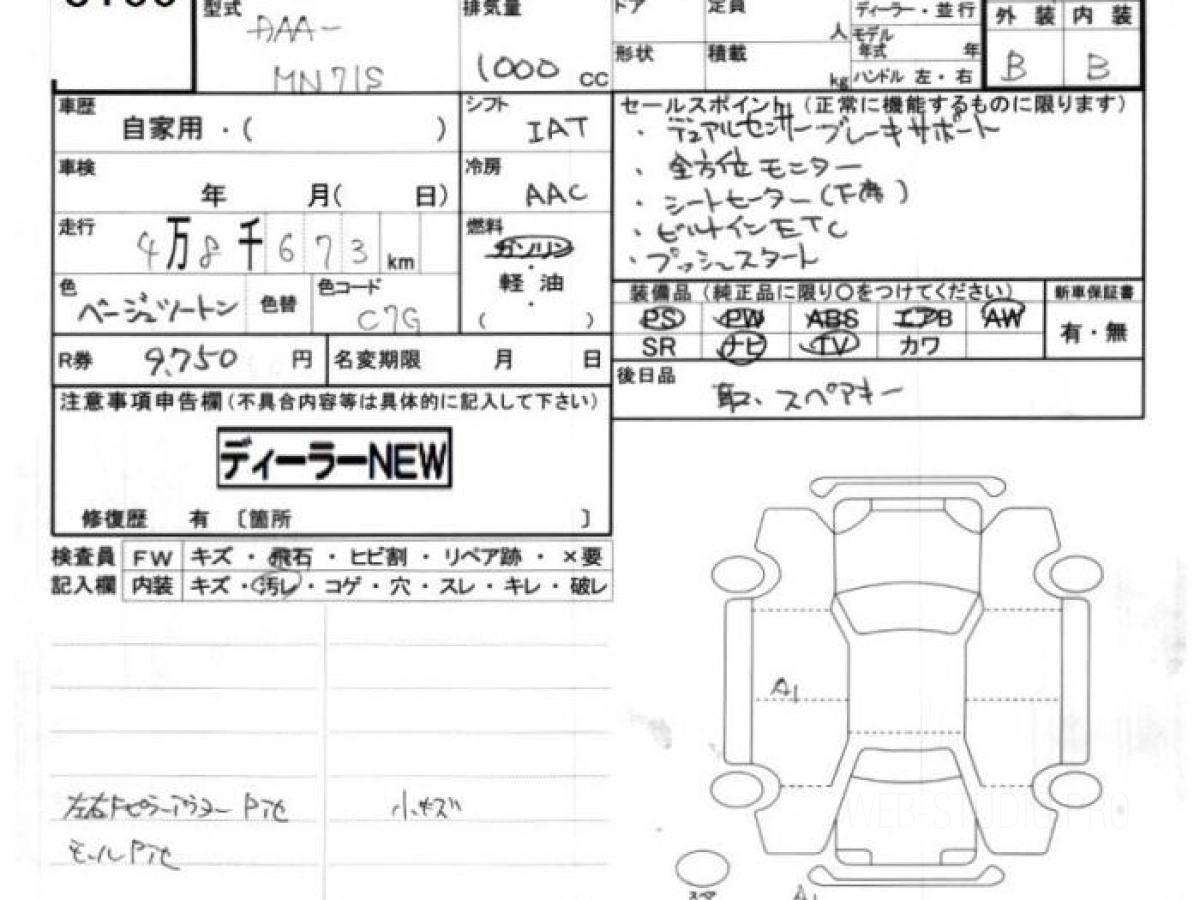 型式 DAA-
MN71S
排気量
1000 cc
ドア 定員 人
形状 積載 kg
ディーラー・並行
モデル年式 年
ハンドル 左・右
外装 内装
B B
車歴
自家用・( )
シフト
IAT
車検
年 月( 日)
冷房
AAC
走行
4万8千673km
燃料
ガソリン
・
軽油
・
( )
色
ベージュツートン
色替
色コード
C7G
R券 9,750 円
名変期限 月 日
セールスポイント(正常に機能するものに限ります)
・デュアルセンサーブレーキサポート
・全方位モニター
・シートヒーター(下席)
・ビルトインETC
・プッシュスタート
装備品(純正品に限り○をつけてください)
新車保証書
PS PW ABS エアB AW
有・無
SR ナビ TV カワ
後日品
取、スペアキー
注意事項申告欄(不具合内容等は具体的に記入して下さい)
ディーラーNEW
修復歴 有 〔箇所 〕
検査員 FW キズ・飛石・ヒビ割・リペア跡・×要
記入欄 内装 キズ・汚レ・コゲ・穴・スレ・キレ・破レ
左右Fピラーアウター P他
小キズ
モール P他
A1
スペア
A1
WEB-STUDIO.PRO